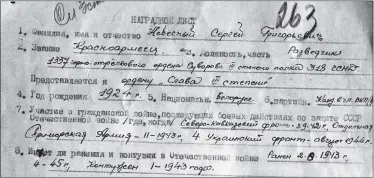 263
НАГРАДНОЙ ЛИСТ
1. Фамилия, имя и отчество Небесный Сергей Григорьевич
2. Звание Красноармеец 3. Должность, часть Разведчик
1337 горно-стрелкового ордена Суворова III степени полка 318
Представляется к ордену "Слава III степени"
4. Год рождения 1924 г. 5. Национальн. Белорус 6. партийн.
7. Участие в гражданской войне, последующих боевых действиях по защите СССР
Отечественной войне (где, когда) Северо-Кавказский фронт Отдельная
Приморская Армия - 11-1943г., 4 Украинский фронт - август 1944г.
8. Имеет ли ранения и контузии в Отечественной войне Ранен 1943г.
Контужен 1-1943 года.